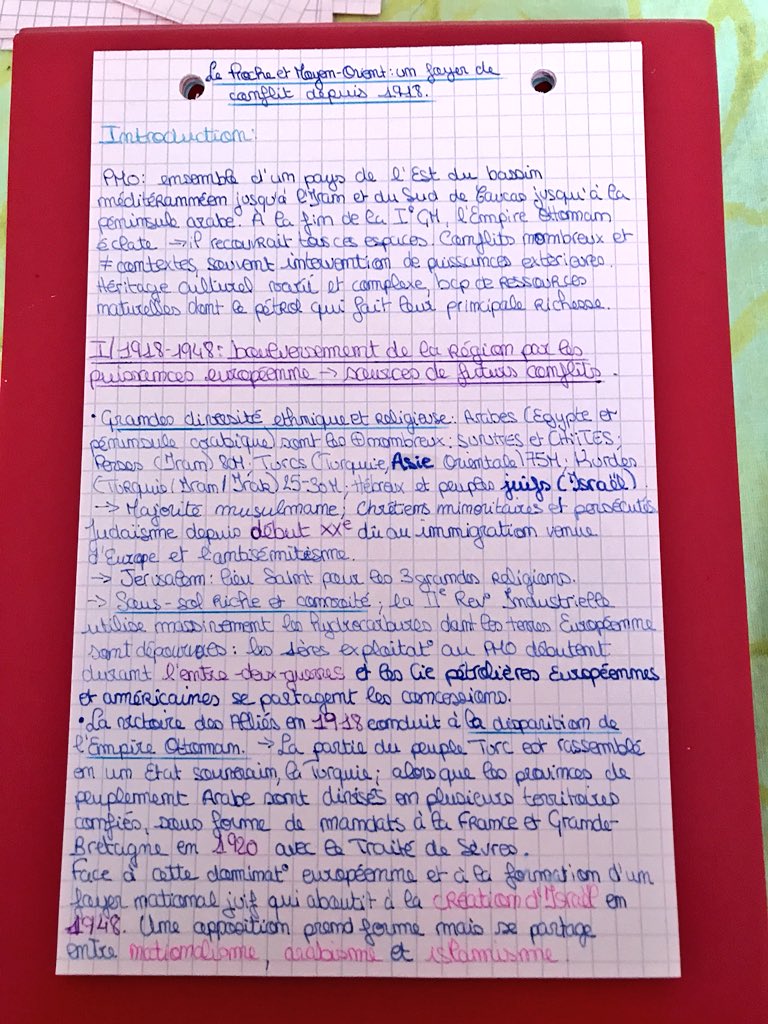 Le Proche et Moyen-Orient : un foyer de
conflit depuis 1918.
Introduction :
PMO : ensemble d'un pays de l'Est du bassin
méditérannéen jusqu'à l'Iran et du Sud de Caucas jusqu'à la
péninsule arabe. A la fin de la I° GM, l'Empire Ottoman
éclate → il recouvrait tous ces espaces. Conflits nombreux et
≠ contextes, souvent intervention de puissances extérieures.
Héritage culturel varié et complexe, bcp de RESSOURCES
naturelles dont le pétrol qui fait leur principale richesse.
I/ 1918-1948 : bouleversement de la Région par les
puissances européenne → sources de futurs conflits.
• Grandes diversité ethnique et religieuse : Arabes (Egypte et
péninsule arabique) sont les ⊕ nombreux : SUNITES et CHIITES ;
Perses (Iran) 80M ; Turcs (Turquie, Asie Orientale) 75M ; Kurdes
(Turquie / Iran / Irak) 25-30M ; Hébreux et peuples juifs (Israël)
→ Majorité musulmane ; Chrétiens minoritaires et persécutés
Judaïsme depuis début XXe dû au immigration venue
d'Europe et l'antisémitisme.
→ Jerusalem : lieu Saint pour les 3 grandes religions.
→ Sous-sol Riche et convoité ; la IIe Rev° Industrielle
utilise massivement les hydrocarbures dont les terres Européenne
sont dépourvues : les 1ères exploitat° au PMO débutent
durant l'entre-deux-guerres et les Cie pétrolières Européennes
et américaines se partagent les concessions.
• La victoire des Alliés en 1918 conduit à la disparition de
l'Empire Ottoman. → La partie du peuple Turc est rassemblé
en un Etat souverain, la Turquie ; alors que les provinces de
peuplement Arabe sont divisés en plusieurs territoires
confiés, sous forme de mandats à la France et Grande-
Bretagne en 1920 avec le Traité de Sèvres.
Face à cette dominat° européenne et à la formation d'un
foyer national juif qui aboutit à la création d'Israël en
1948. Une opposition prend forme mais se partage
entre nationalisme, arabisme et islamisme